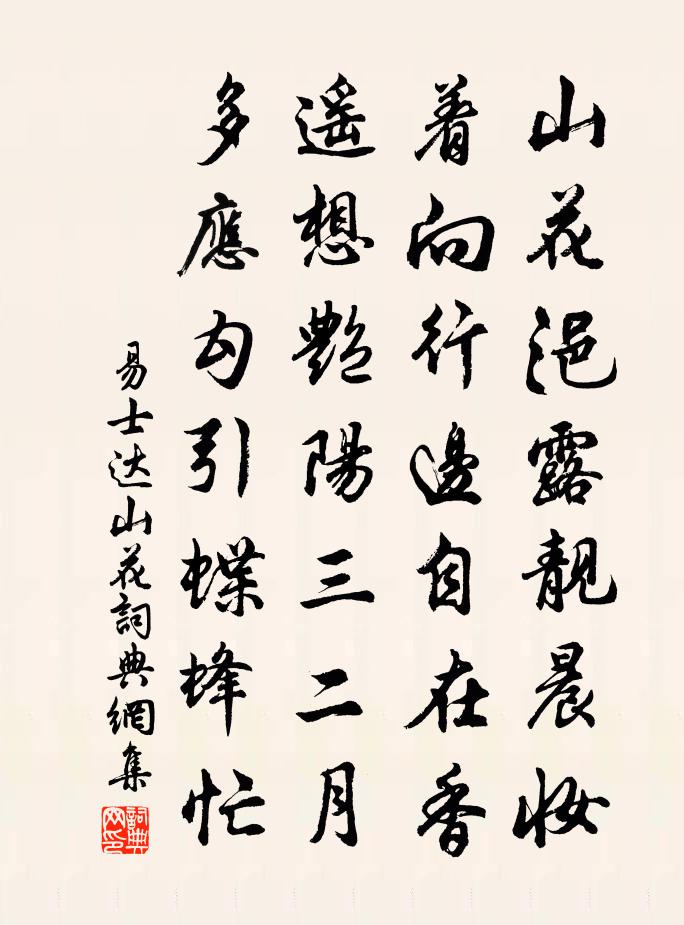 山花浥露靓晨妆
着向行邊自在香
遥想艷陽三二月
多應勾引蝶蜂忙
易士达山花詞典網集
詞典网印